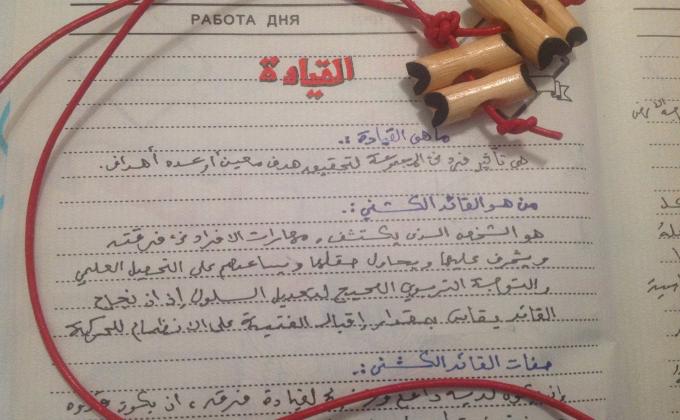 РАБОТА ДНЯ
القيادة
ما هي القيادة :.
هي تأثير فرد في المجموعة لتحقيق هدف معين أو عدة أهداف.
من هو القائد الكشفي :.
هو الشخص الذي يكتشف مهارات الافراد في فرقته
ويشرف عليها ويحاول صقلها ويساعدهم على التحصيل العلمي
والتوجية التربوي الصحيح لتعديل السلوك إذ ان نجاح
القائد يقاس بمقدار إقبال الفتية على الانضمام للحركة
صفات القائد الكشفي :.
لقيادة فرقته ، أن يكون